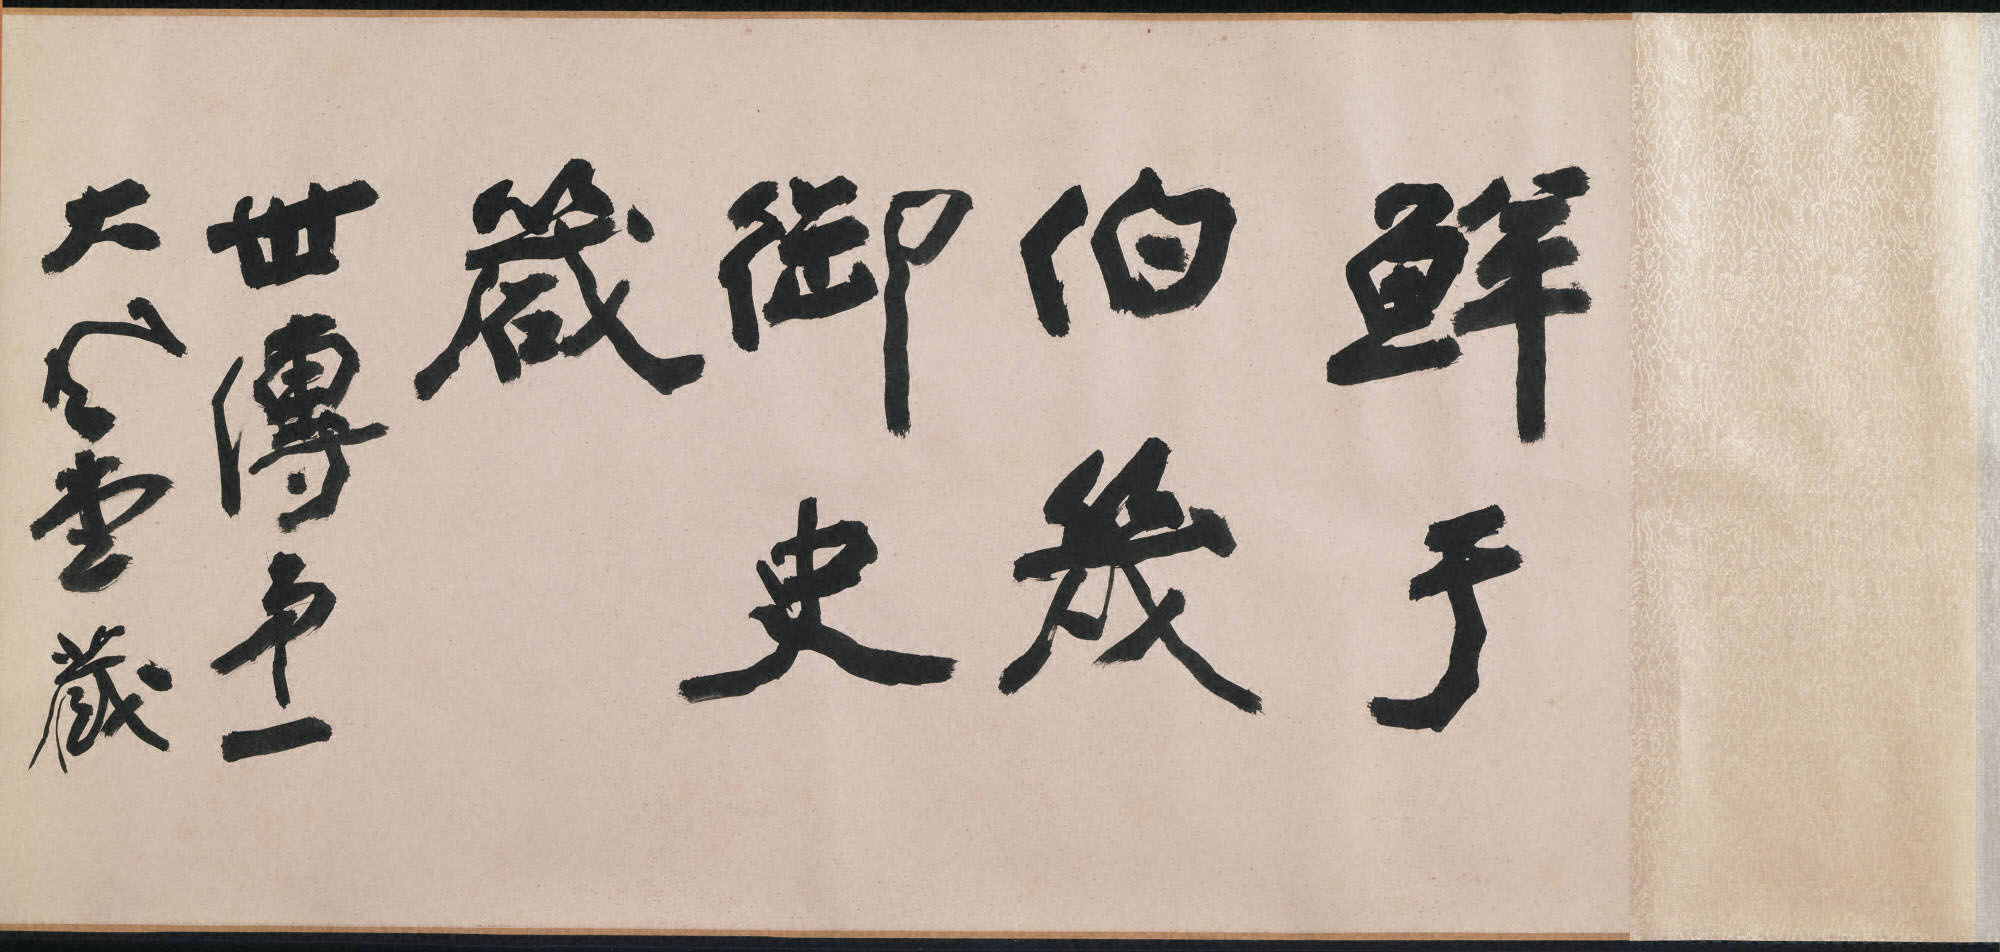 鮮于
伯幾
御史
箴
世傳第一
大風堂藏